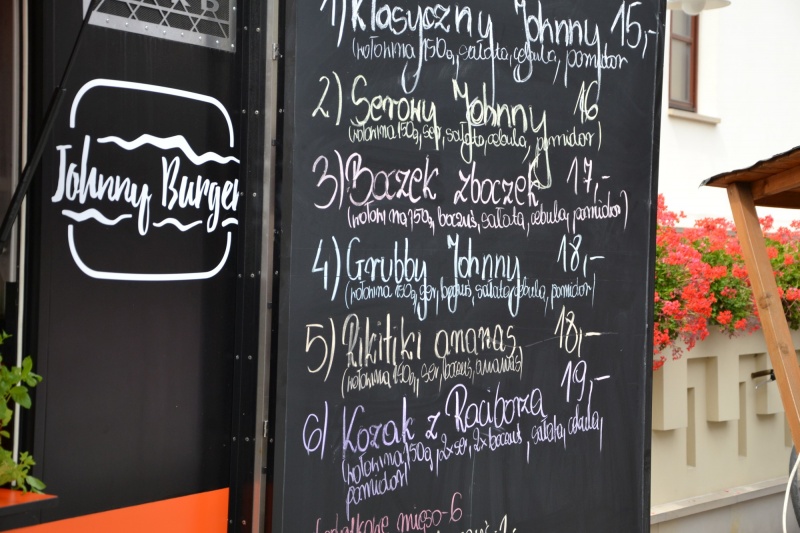 Johnny Burger
1) Klasyczny Johnny 15,-
(wołowina 150g, sałata, cebula, pomidor
2) Serowy Johnny 16
(wołowina 150g, ser, sałata, cebula, pomidor)
3) Boczek zboczek 17,-
(wołowina 150g, boczuś, sałata, cebula, pomidor)
4) Grubby Johnny 18,-
(wołowina 150g, ser, boczuś, sałata, cebula, pomidor)
5) Rikitiki ananas 18,-
(wołowina 150g, ser, boczuś, ananas)
6) Kozak z Raciborza 19,-
(wołowina 150g, 2x ser, 2x boczuś, sałata, cebula,
pomidor)
dodatkowe mięso-6